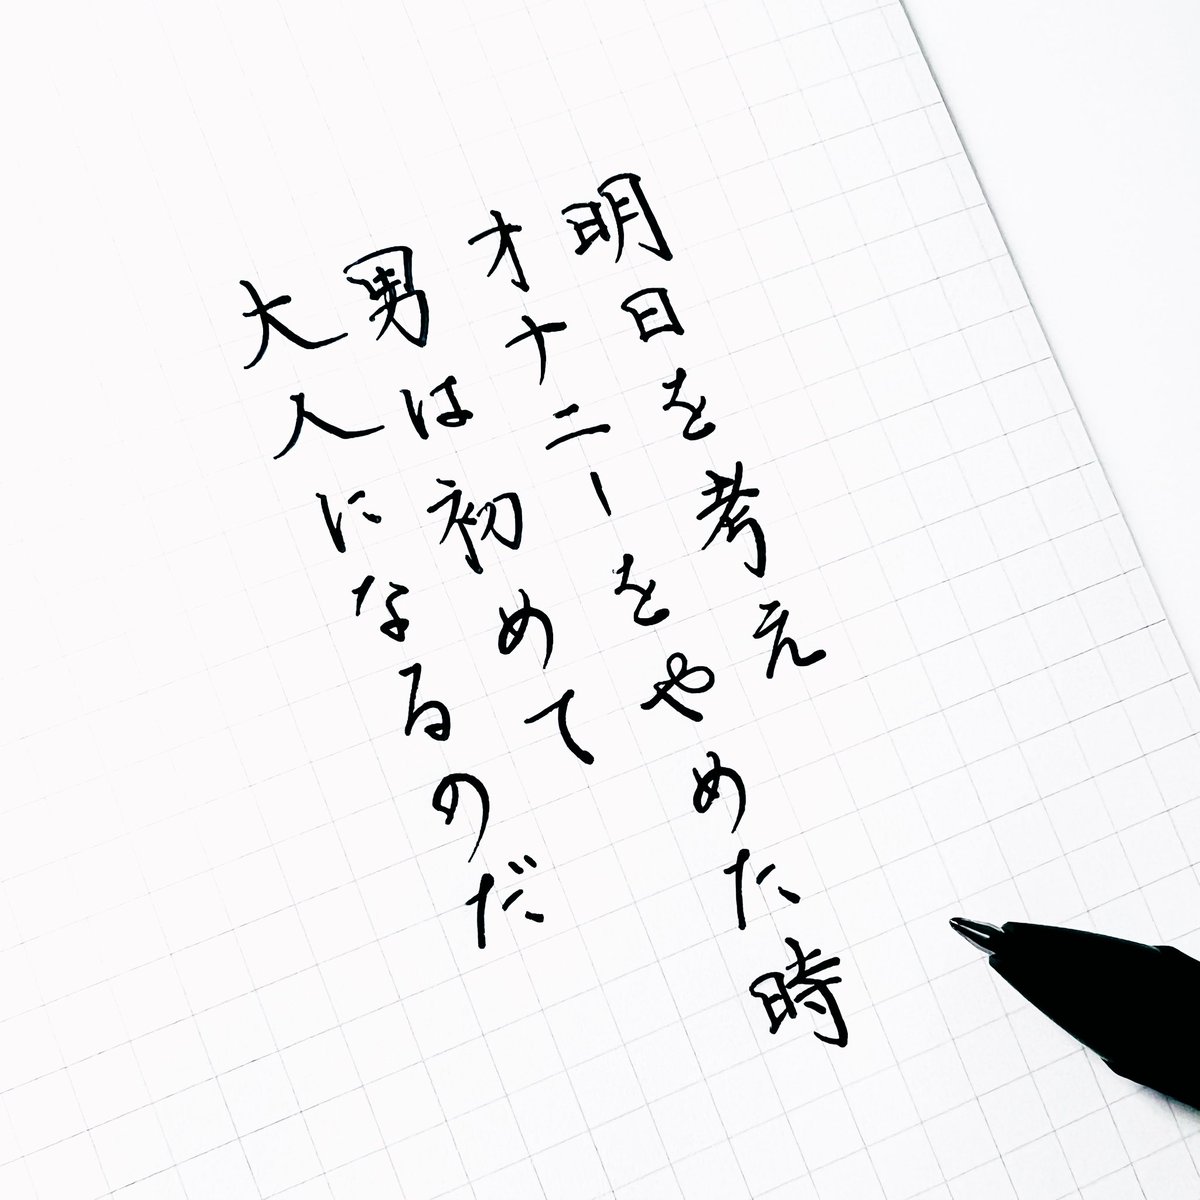 明日を考え
オナニーをやめた時
男は初めて
大人になるのだ